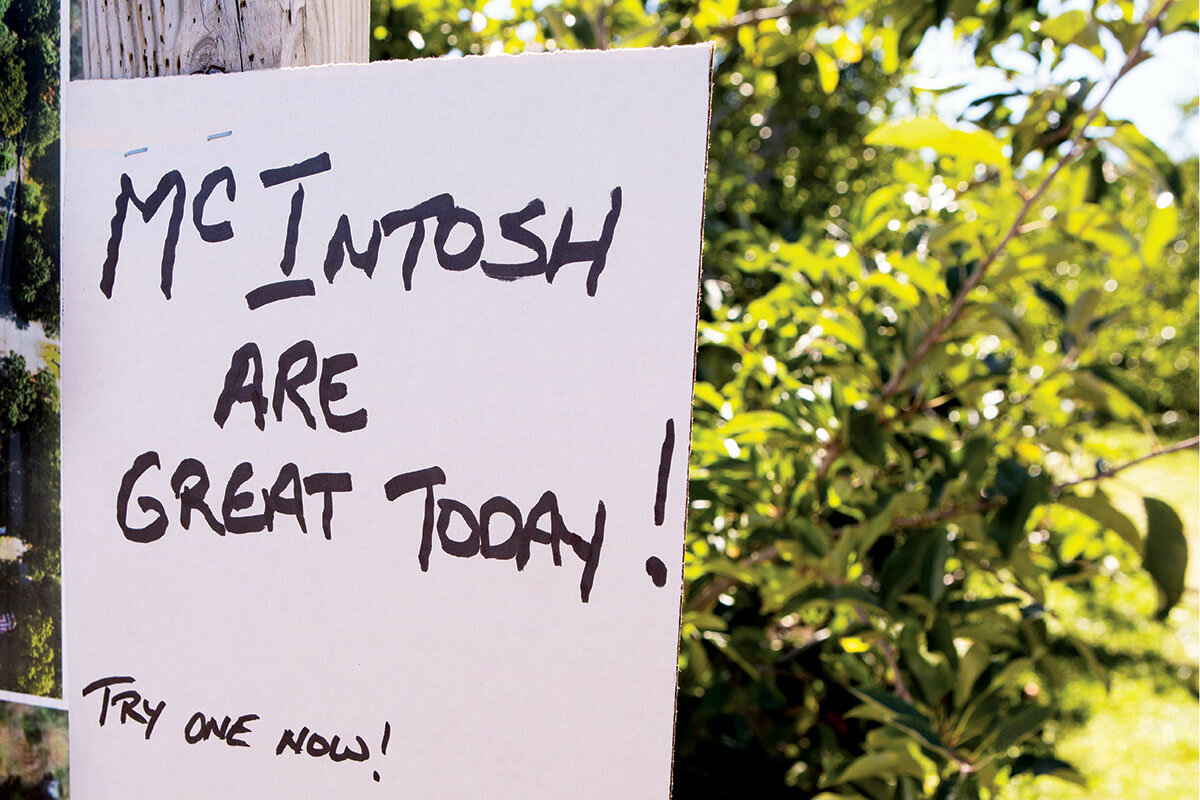 McINTOSH
ARE
GREAT TODAY!
TRY ONE NOW!